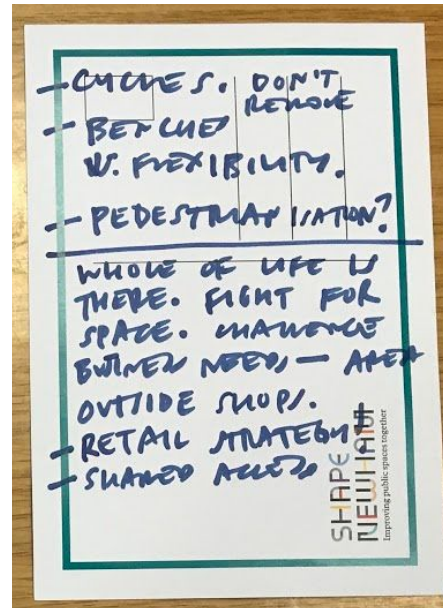 - CYCLES. DON'T
REMOVE
- BENCHES
W. FLEXIBILITY.
- PEDESTRIANISATION?
WHOLE OF LIFE IS
THERE. FIGHT FOR
SPACE. CHALLENGE
BUSINESS NEEDS — AREA
OUTSIDE SHOPS.
- RETAIL STRATEGY.
- SHARED ACCESS
SHAPE
NEWHAM
Improving public spaces together